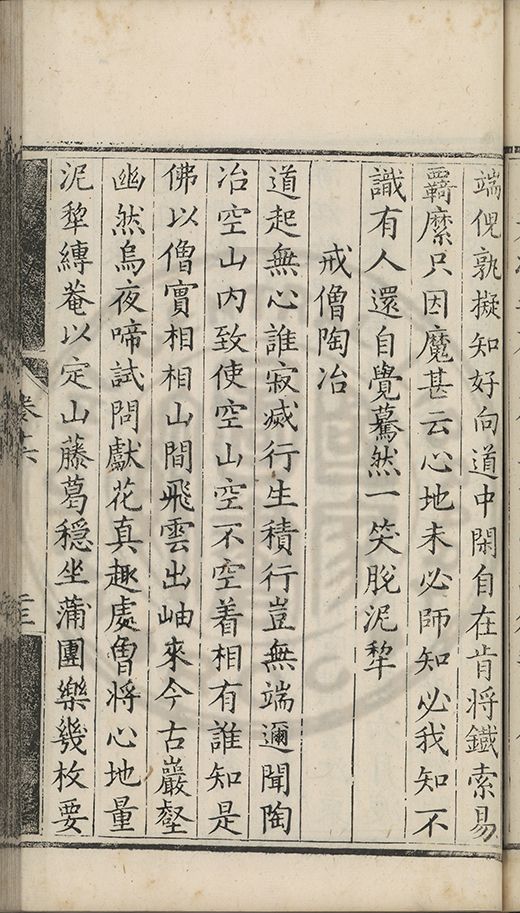 端倪孰擬知好向道中閑自在肯將鐵索易
羇縻只因魔甚云心地未必師知必我知不
識有人還自覺驀然一笑脫泥犂
戒僧陶冶
道起無心誰寂滅行生積行豈無端邇聞陶
冶空山内致使空山空不空着相有誰知是
佛以僧實相相山間飛雲出岫來今古巖壑
幽然鳥夜啼試問獻花真趣處曾將心地量
泥犂縛菴以定山藤葛穩坐蒲團樂幾枚要